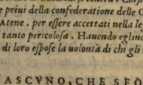 e privi della confederatione delle C
Atene. per essere accettati nella le
tanto pericolosa. Hauendo eglin
di loro espose la volontà di chi gli
ASCVNO, CHE SEO